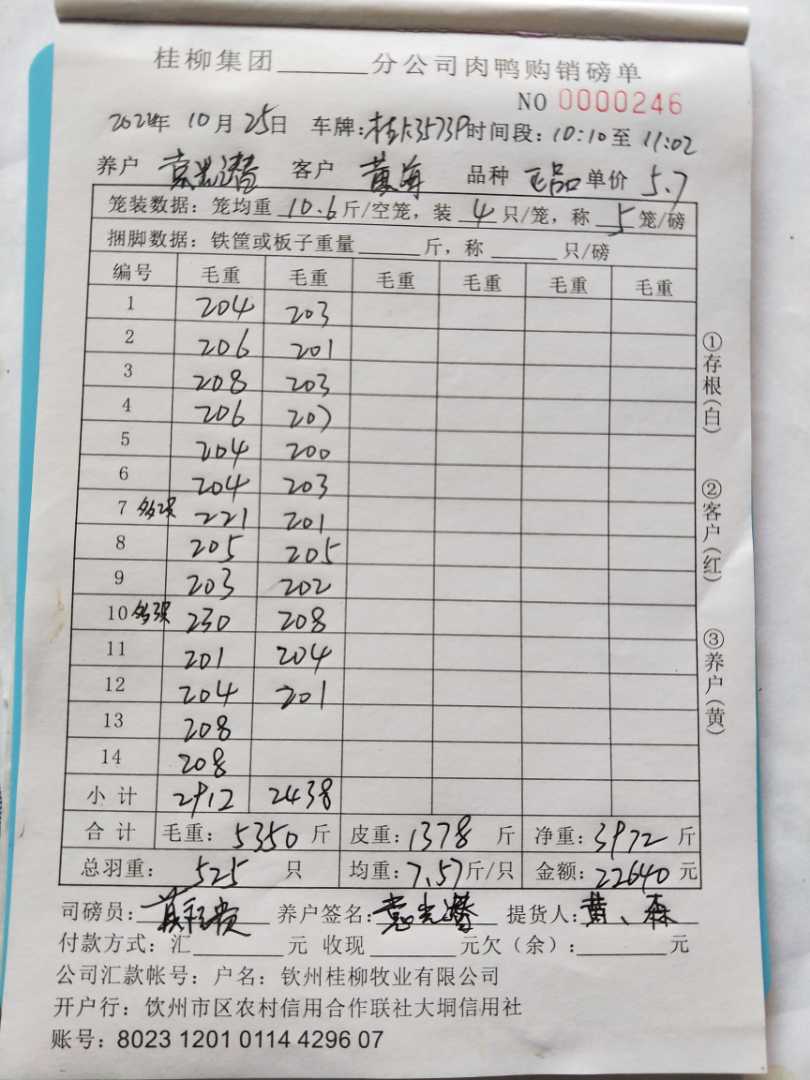 桂柳集团______分公司肉鸭购销磅单
NO 0000246
年 10月25日 车牌: 时间段:10:10至11:02
养户 客户 黄海 品种 正品 单价 5.7
笼装数据:笼均重 10.6 斤/空笼,装 4 只/笼,称 5 笼/磅
捆脚数据:铁筐或板子重量______斤,称______只/磅
编号 毛重 毛重 毛重 毛重 毛重 毛重
1 204 203
2 206 201
3 208 203
4 206 207
5 204 200
6 204 203
7 多2只 221 201
8 205 205
9 203 202
10 多3只 230 208
11 201 204
12 204 201
13 208
14 208
小计 2912 2438
合计 毛重:5350斤 皮重:1378斤 净重:3972斤
总羽重:525只 均重:7.57斤/只 金额:22640元
司磅员: 养户签名: 提货人:黄、森
付款方式:汇______元 收现______元欠(余):______元
公司汇款帐号:户名:钦州桂柳牧业有限公司
开户行:钦州市区农村信用合作联社大垌信用社
账号:8023 1201 0114 4296 07
①存根(白)
②客户(红)
③养户(黄)